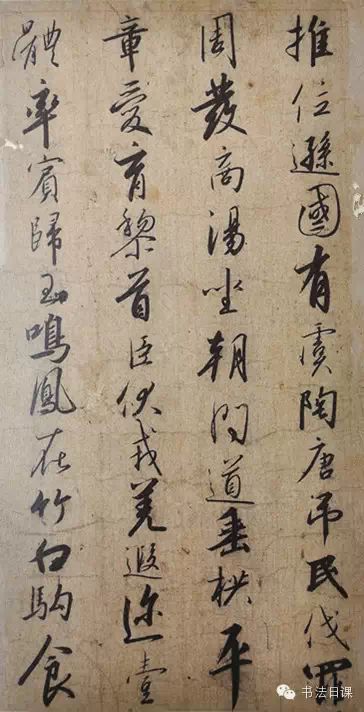 推位遜國有虞陶唐弔民伐罪
周發商湯坐朝問道垂拱平
章愛育黎首臣伏戎羌遐迩壹
體率賓歸王鳴鳳在竹白駒食
书法日课